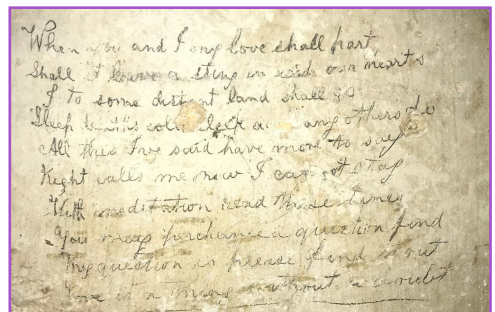 When you and I my love shall part
Shall it leave a sting in each our hearts
I to some distant land shall go
Sleep cold
All this I've said have more to say
Night calls me now I can not stay
With meditation read these lines
You may perchance a question find
My question is please find it out
Love is a thing without a doubt